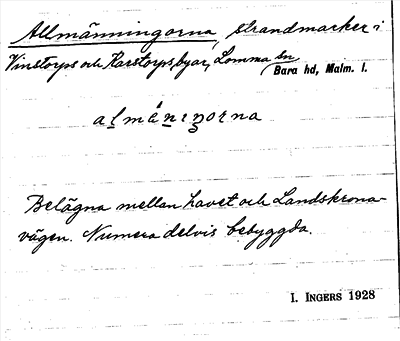 Allmänningorna, strandmarker i
Vinstorps och Karstorps byar, Lomma sn
Bara hd, Malm. l.
Belägna mellan havet och Landskrona-
vägen. Numera delvis bebyggda.
I. INGERS 1928